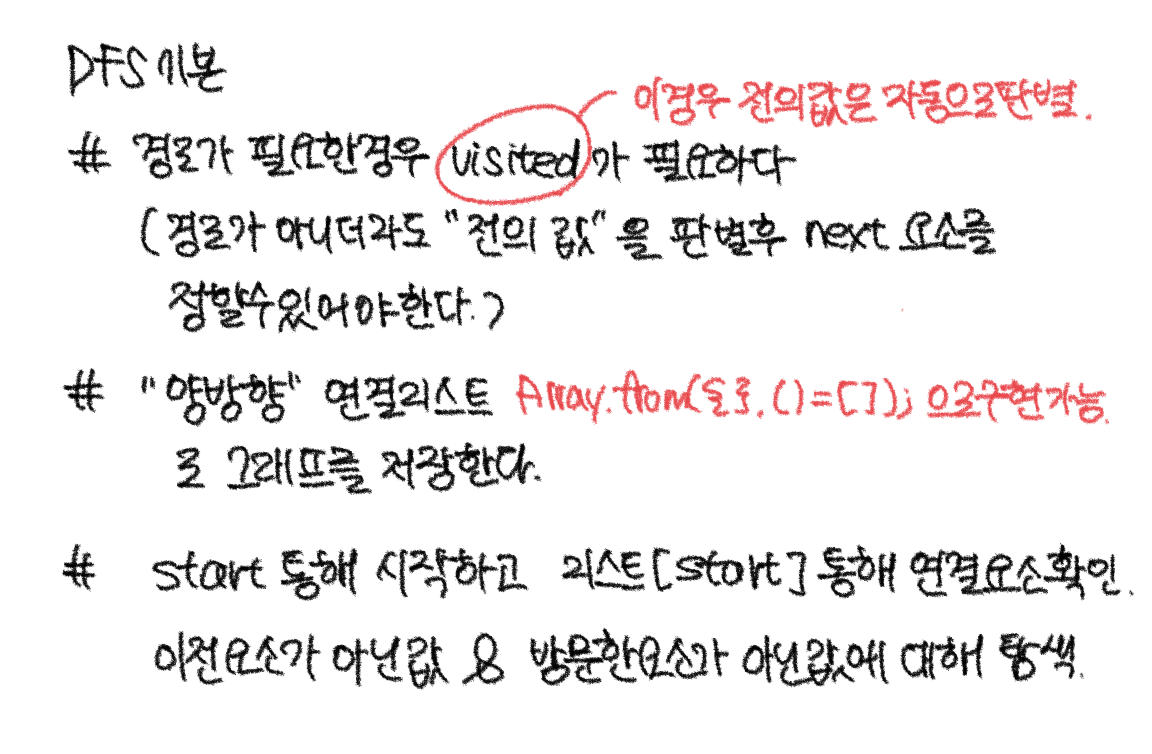 DFS 기본
이경우 전의값은 자동으로판별.
# 경로가 필요한경우 visited 가 필요하다
(경로가 아니더라도 "전의 값"을 판별후 next 요소를
정할수있어야한다.)
# "양방향" 연결리스트 Array.from(길이, ()=[]); 으로구현가능.
로 그래프를 저장한다.
# start 통해 시작하고 리스트[start] 통해 연결요소확인.
이전요소가 아닌값 & 방문한요소가 아닌값에 대해 탐색.